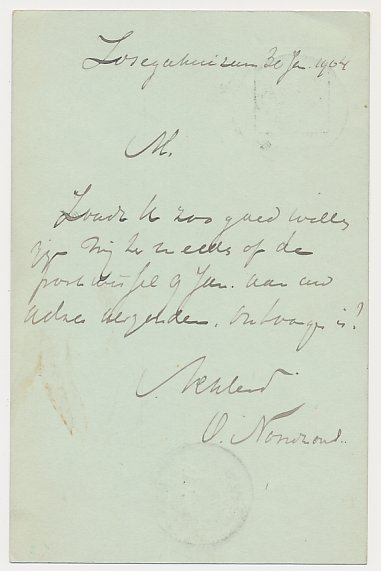 Losegahuizum 30 Jan. 1904
M.
Zoudt U zoo goed willen
zijn mij te melden of de
postwissel 9 Jan. aan uw
adres verzonden, ontvangen is?
Achtend
O.